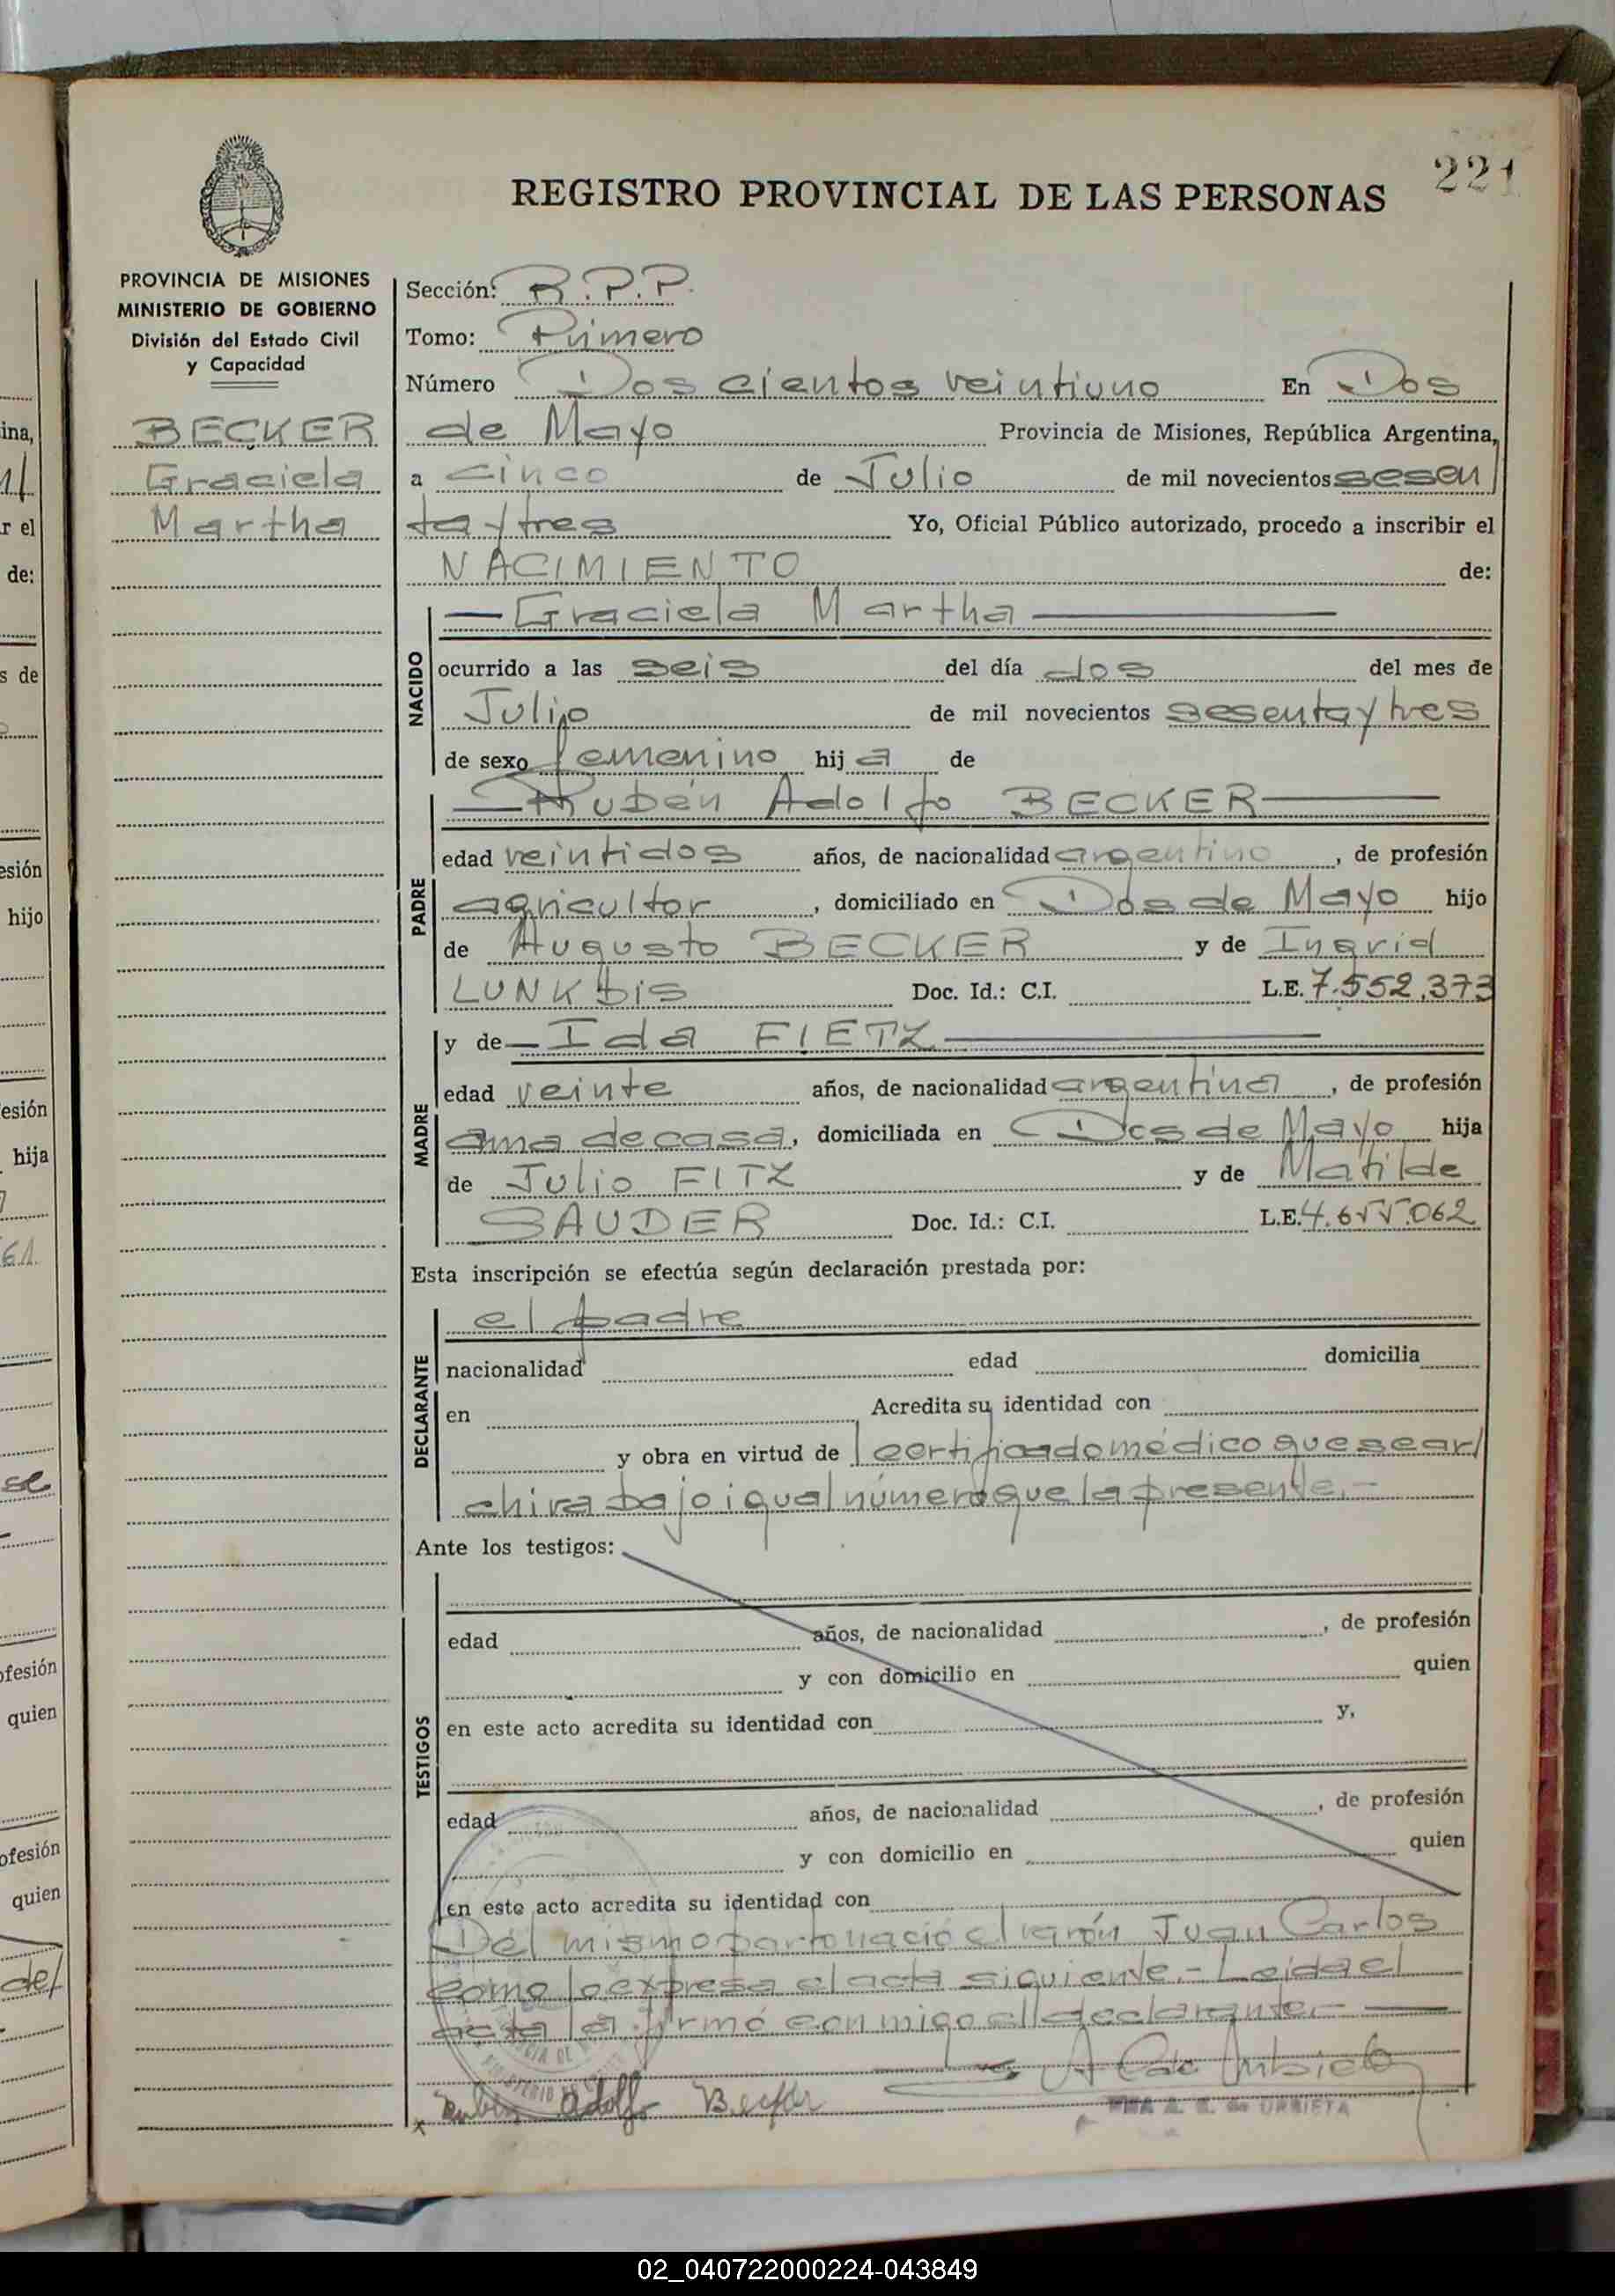 221
REGISTRO PROVINCIAL DE LAS PERSONAS
PROVINCIA DE MISIONES
MINISTERIO DE GOBIERNO
División del Estado Civil
y Capacidad
BECKER
Graciela
Martha
Sección: R.P.P.
Tomo: Primero
Número Dos cientos veintiuno En Dos
de Mayo Provincia de Misiones, República Argentina,
a cinco de Julio de mil novecientos sesen
ta y tres Yo, Oficial Público autorizado, procedo a inscribir el
NACIMIENTO de:
NACIDO
— Graciela Martha —
ocurrido a las seis del día dos del mes de
Julio de mil novecientos sesenta y tres
de sexo femenino hij a de
PADRE
— Rubén Adolfo BECKER —
edad veintidos años, de nacionalidad argentino, de profesión
agricultor, domiciliado en Dos de Mayo hijo
de Augusto BECKER y de Ingrid
Doc. Id.: C.I. L.E. 7.552.373
MADRE
y de — Ida FIETZ —
edad veinte años, de nacionalidad argentina, de profesión
ama de casa, domiciliada en Dos de Mayo hija
de Julio FITZ y de Matilde
SAUDER Doc. Id.: C.I. L.E. 4.655.062
Esta inscripción se efectúa según declaración prestada por:
DECLARANTE
el padre
nacionalidad edad domicilia
en Acredita su identidad con
y obra en virtud de l certificado médico que se ar/
chiva bajo igual número que la presente.-
Ante los testigos:
TESTIGOS
edad años, de nacionalidad , de profesión
y con domicilio en quien
en este acto acredita su identidad con y,
edad años, de nacionalidad , de profesión
y con domicilio en quien
en este acto acredita su identidad con
Del mismo parto nació el varón Juan Carlos
como lo expresa el acta siguiente.- Leida el
acta la firmó conmigo el declarante.—
Rubén Adolfo Becker
de URBIETA
ina,
r el
de:
s de
esión
hijo
esión
hija
se
ofesión
quien
ofesión
quien
del
02_040722000224-043849